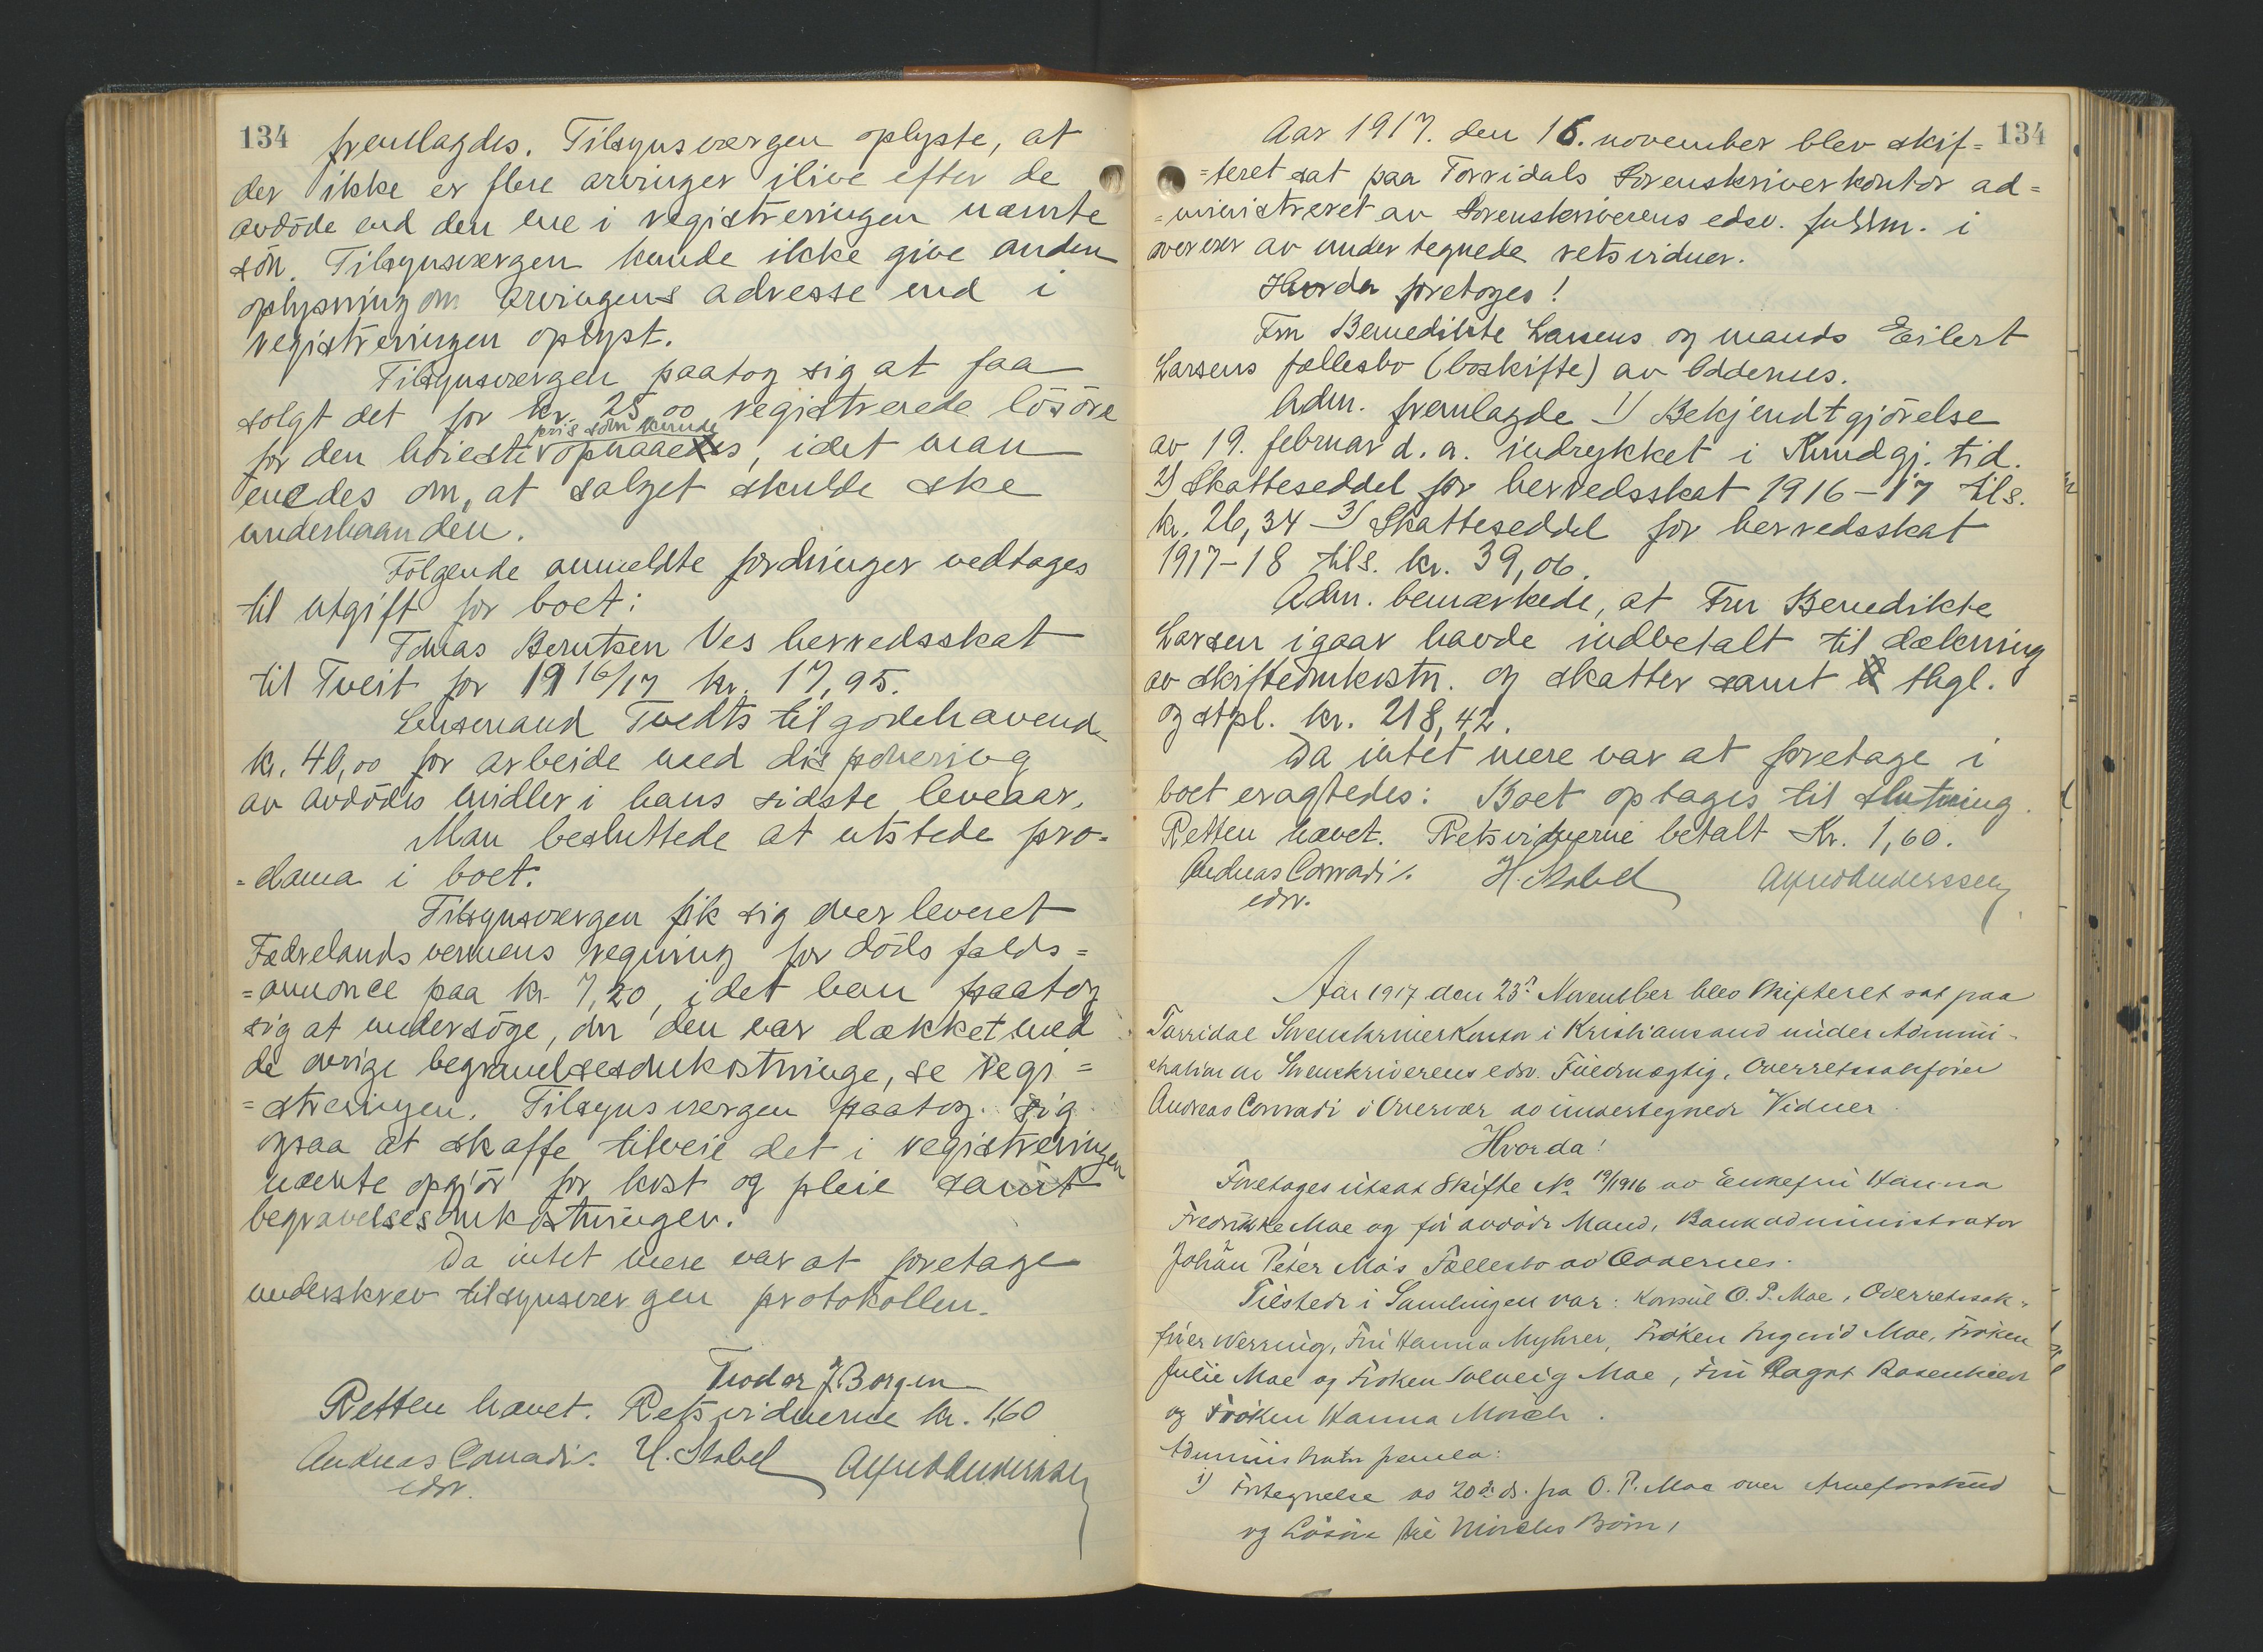 134
fremlagdes. Tilsynsværgen oplyste, at
der ikke er flere arvinger ilive efter de
avdöde end den ene i registreringen nævnte
sön. Tilsynsværgen kunde ikke give anden
oplysning om arvingens adresse end i
registreringen oplyst.
Tilsynsværgen paatog sig at faa
solgt det for kr. 25,00 registrerede lösöre
pris som kunde
for den höieste opnaaes, idet man
enedes om, at salget skulde ske
underhaanden.
Fölgende anmeldte fordringer vedtages
til utgift for boet:
Tomas Berntsen Ves herredsskat
til Tveit for 1916/17 kr. 17,95.
Lensmand Tvedts tilgodehavende
kr. 40,00 for arbeide med disponering
av avdödes midler i hans sidste leveaar.
Man besluttede at utstede pro-
=clama i boet.
Tilsynsværgen fik sig overleveret
Fædrelandsvennens regning for döds falds=
=annonce paa kr. 7,20, idet han paatog
sig at undersöge, om den var dækket med
de övrige begravelsesomkostninge, se regi=
=streringen. Tilsynsværgen paatog sig
ogsaa at skaffe tilveie det i registreringen
nævnte opgjör for kost og pleie samt
begravelsesomkostninger.
Da intet mere var at foretage
underskrev tilsynsværgen protokollen.
Teodor J. Borgen
Retten hævet. Retsvidnerne kr. 1,60
Andreas Conradi. H. Stabel Alfred Anderssen
edsv.
134
Aar 1917. den 16. november blev skif=
=teret sat paa Torridals Sorenskriverkontor ad=
=ministreret av Sorenskriverens edsv. fuldm. i
overvær av undertegnede retsvidner.
Hvorda foretoges!
Fru Benedikte Larsens og mands Eilert
Larsens fællesbo (boskifte) av Oddernes.
Adm. fremlagde 1) Bekjendtgjörelse
av 19. februar d. a. indrykket i Kundgj. tid.
2) Skatteseddel for herredsskat 1916-17 tils.
kr. 26,34 3) Skatteseddel for herredsskat
1917-18 tils. kr. 39,06.
Adm. bemærkede, at Fru Benedikte
Larsen igaar havde indbetalt til dækning
av skifteomkostn. og skatter samt thgl.
og stpl. kr. 218,42.
Da intet mere var at foretage i
boet eragtedes: Boet optages til slutning.
Retten hævet. Retsvidnerne betalt Kr. 1,60.
Andreas Conradi. H. Stabel Alfred Anderssen
edsv.
Aar 1917 den 23de November blev Skifteret sat paa
Torridal Sorenskriverkontor i Kristiansand under Admini-
stration av Sorenskriverens edsv. Fuldmægtig, Overretssakförer
Andreas Conradi i Overvær av undertegnede Vidner.
Hvorda!
Foretages utsat Skifte No 19/1916 av Enkefru Hanna
Fredrikke Moe og för avdöde Mand, Bankadministrator
Johan Peter Moes Fællesbo av Oddernes.
Tilstede i Samlingen var: Konsul O. P. Moe, Overretssak-
förer Werring, Fru Hanna Myhrer, Fröken Ingerid Moe, Fröken
Julie Moe og Fröken Solveig Moe, Fru Dagny Rosenkilde
og Fröken Hanna Mörch.
Administrator fremla:
1) Fortegnelse av 20de ds. fra O. P. Moe over Arveforskud
og Lösöre til Mörchs Börn,